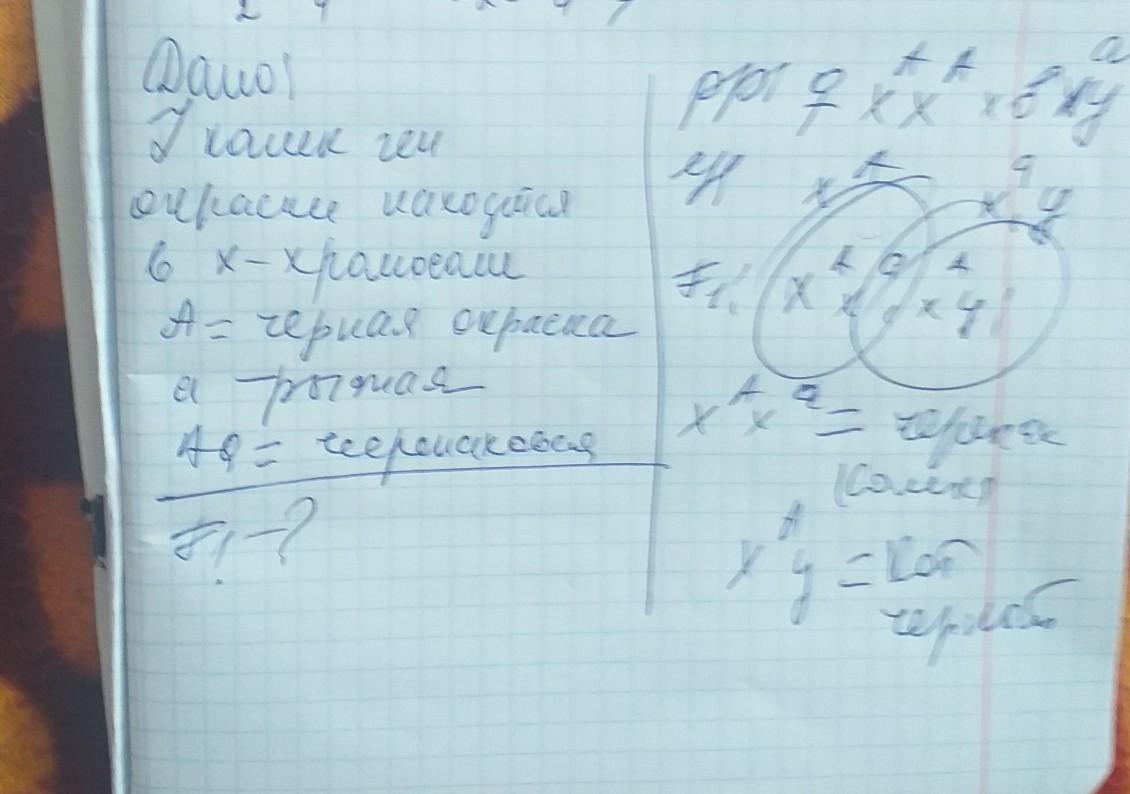 Дано:
У кошек ген
окраски находится
в х-хромосоме
A = черная окраска
a - рыжая
Aa = черепаховая
F₁ - ?
P ♀ XᴬXᴬ x ♂ XᵃY
Xᴬ Xᵃ Y
F₁: XᴬXᵃ XᴬY
XᴬXᵃ = черепах
(кошка)
XᴬY = Кот
черный